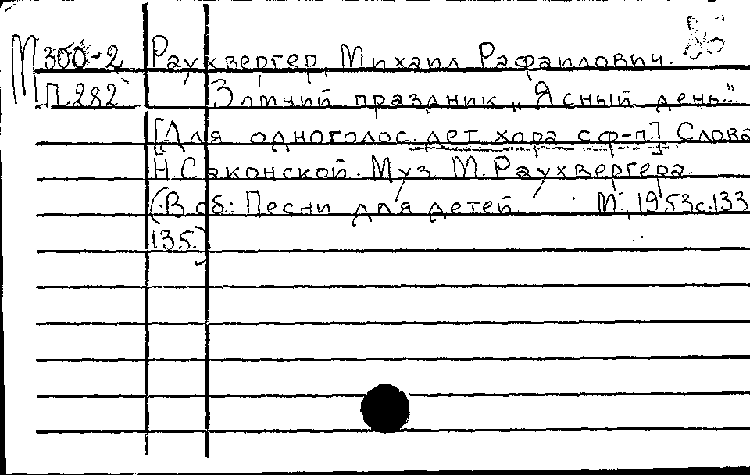 М 300-2 Раухвергер, Михаил Рафаилович.
П.282 Зимний праздник „Ясный день."
[Для одноголос. дет. хора с ф-п] Слова
Н. Саконской. Муз. М. Раухвергера
(В сб: Песни для детей М., 1953 с. 133
135)